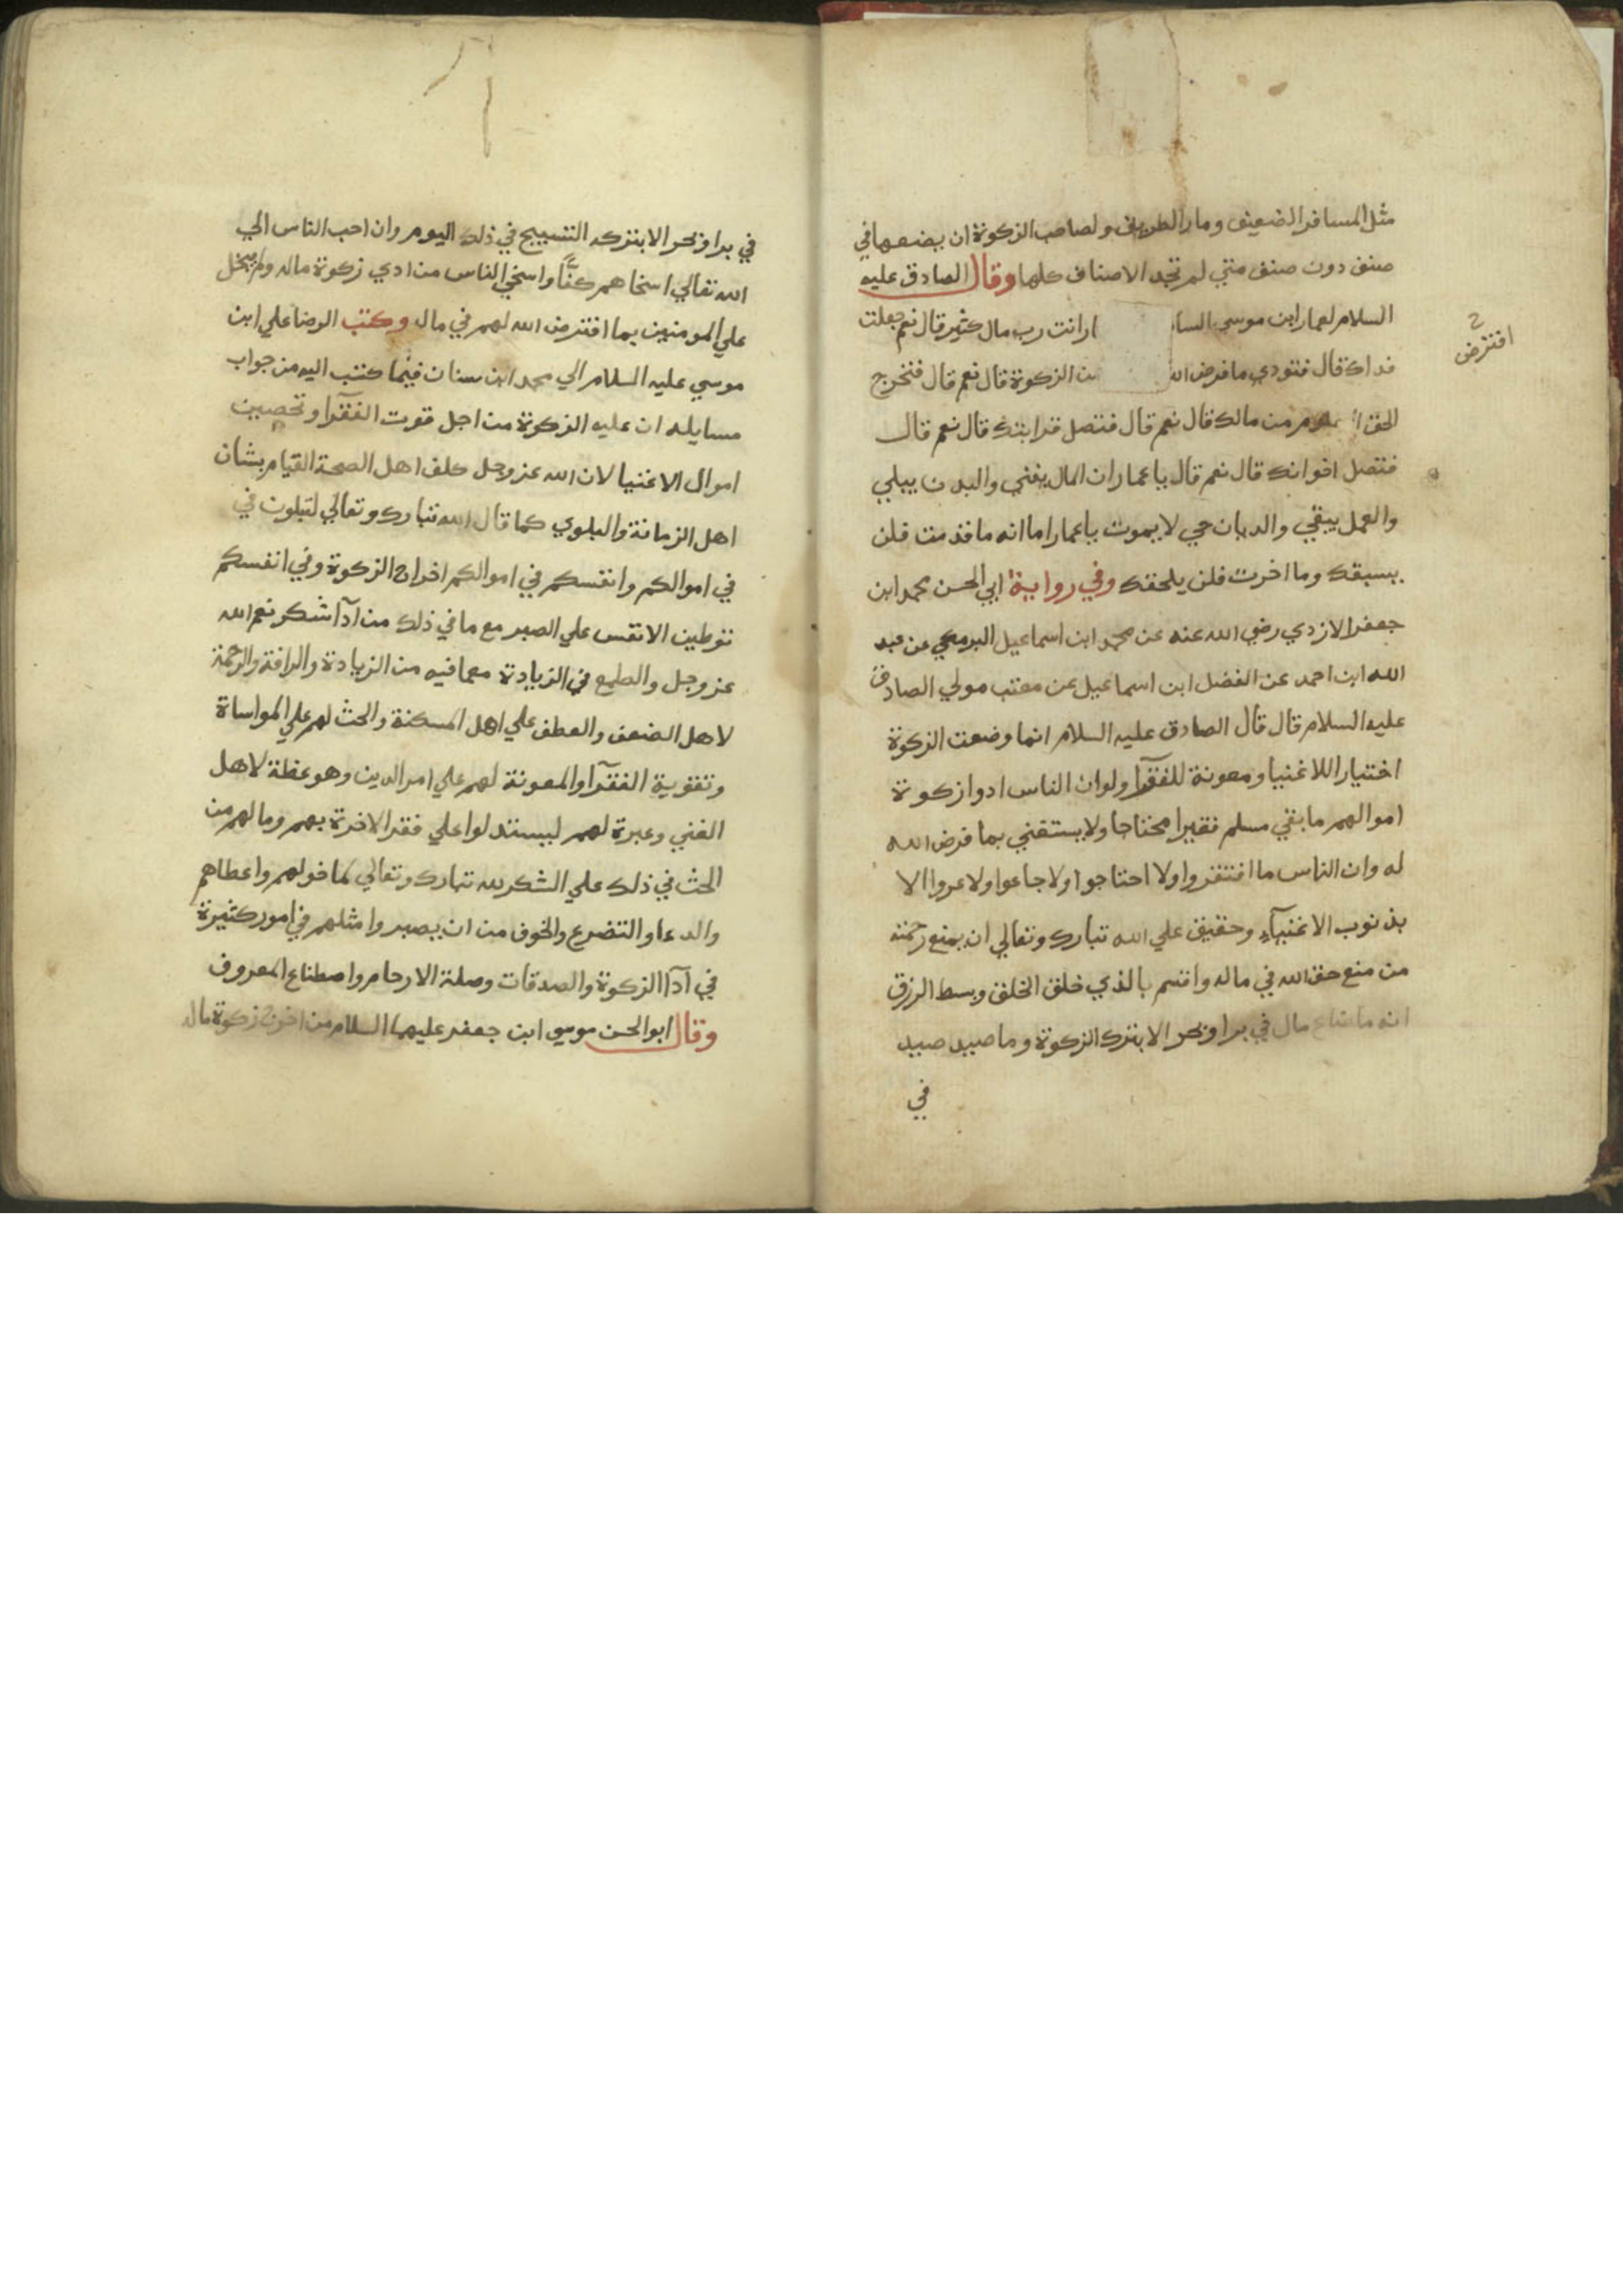 مثل المسافر الضعيف ومار الطريق ولصاحب الزكوة ان يضعها في
صنف دون صنف متي لم تجد الاصناف كلها وقال الصادق عليه
السلام لعمار ابن موسي السا ار انت رب مال كثير قال نعم جعلت
افترض
فداك قال فتودي ما فرض الله من الزكوة قال نعم قال فتخرج
الحق المعلوم من مالك قال نعم قال فتصل قرابتك قال نعم قال
فتصل اخوانك قال نعم قال يا عمار ان المال يفني والبدن يبلي
والعمل يبقي والديان حي لا يموت يا عمار اما انه ما قدمت فلن
يسبقك وما اخرت فلن يلحقك وفي رواية ابي الحسن محمد ابن
جعفر الازدي رضي الله عنه عن محمد ابن اسماعيل البرمكي عن عبد
الله ابن احمد عن الفضل ابن اسماعيل عن معتب مولي الصادق
عليه السلام قال قال الصادق عليه السلام انما وضعت الزكوة
اختيارا للاغنيا ومعونة للفقرآ ولو ان الناس ادوا زكوة
اموالهم ما بقي مسلم فقيرا محتاجا ولا يستغني بما فرض الله
له وان الناس ما افتقروا ولا احتاجوا ولا جاعوا ولا عروا الا
بذنوب الاغنيآء وحقيق علي الله تبارك وتعالي ان يمنع رحمته
من منع حق الله في ماله واقسم بالذي خلق الخلق وبسط الرزق
انه ما ضاع مال في بر او بحر الا بترك الزكوة وما صيد صيد
في
في بر او بحر الا بتركه التسبيح في ذلك اليوم وان احب الناس الي
الله تعالي اسخاهم كفًّا واسخي الناس من ادي زكوة ماله ولم يبخل
علي المومنين بما افترض الله لهم في ماله وكتب الرضا علي ابن
موسي عليه السلام الي محمد ابن سنان فيما كتب اليه من جواب
مسايله ان عليه الزكوة من اجل قوت الفقرآ وتحصين
اموال الاغنيا لان الله عز وجل كلف اهل الصحة القيام بشان
اهل الزمانة والبلوي كما قال الله تبارك وتعالي لتبلون في
في اموالكم وانفسكم في اموالكم اخراج الزكوة وفي انفسكم
توطين الانفس علي الصبر مع ما في ذلك من ادآ شكر نعم الله
عز وجل والطمع في الزيادة مع ما فيه من الزيادة والرافة والرحمة
لاهل الضعف والعطف علي اهل المسكنة والحث لهم علي المواساة
وتقوية الفقرآ والمعونة لهم علي امر الدين وهو عظة لاهل
الغني وعبرة لهم ليستدلوا علي فقر الاخرة بهم وما لهم من
الحث في ذلك علي الشكر لله تبارك وتعالي لما خولهم واعطاهم
والدعا والتضرع والخوف من ان يصيروا مثلهم في امور كثيرة
في ادآ الزكوة والصدقات وصلة الارحام واصطناع المعروف
وقال ابو الحسن موسي ابن جعفر عليهما السلام من اخرج زكوة ماله